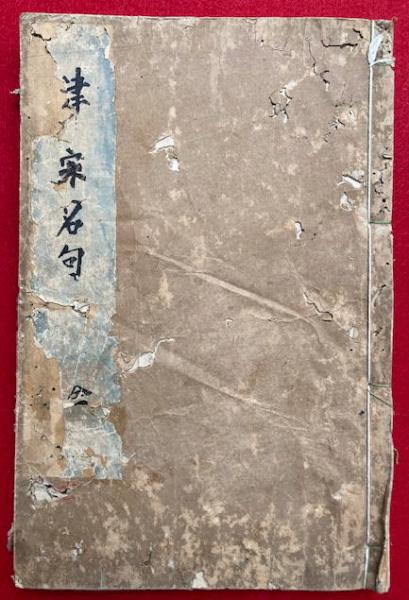 津家名句